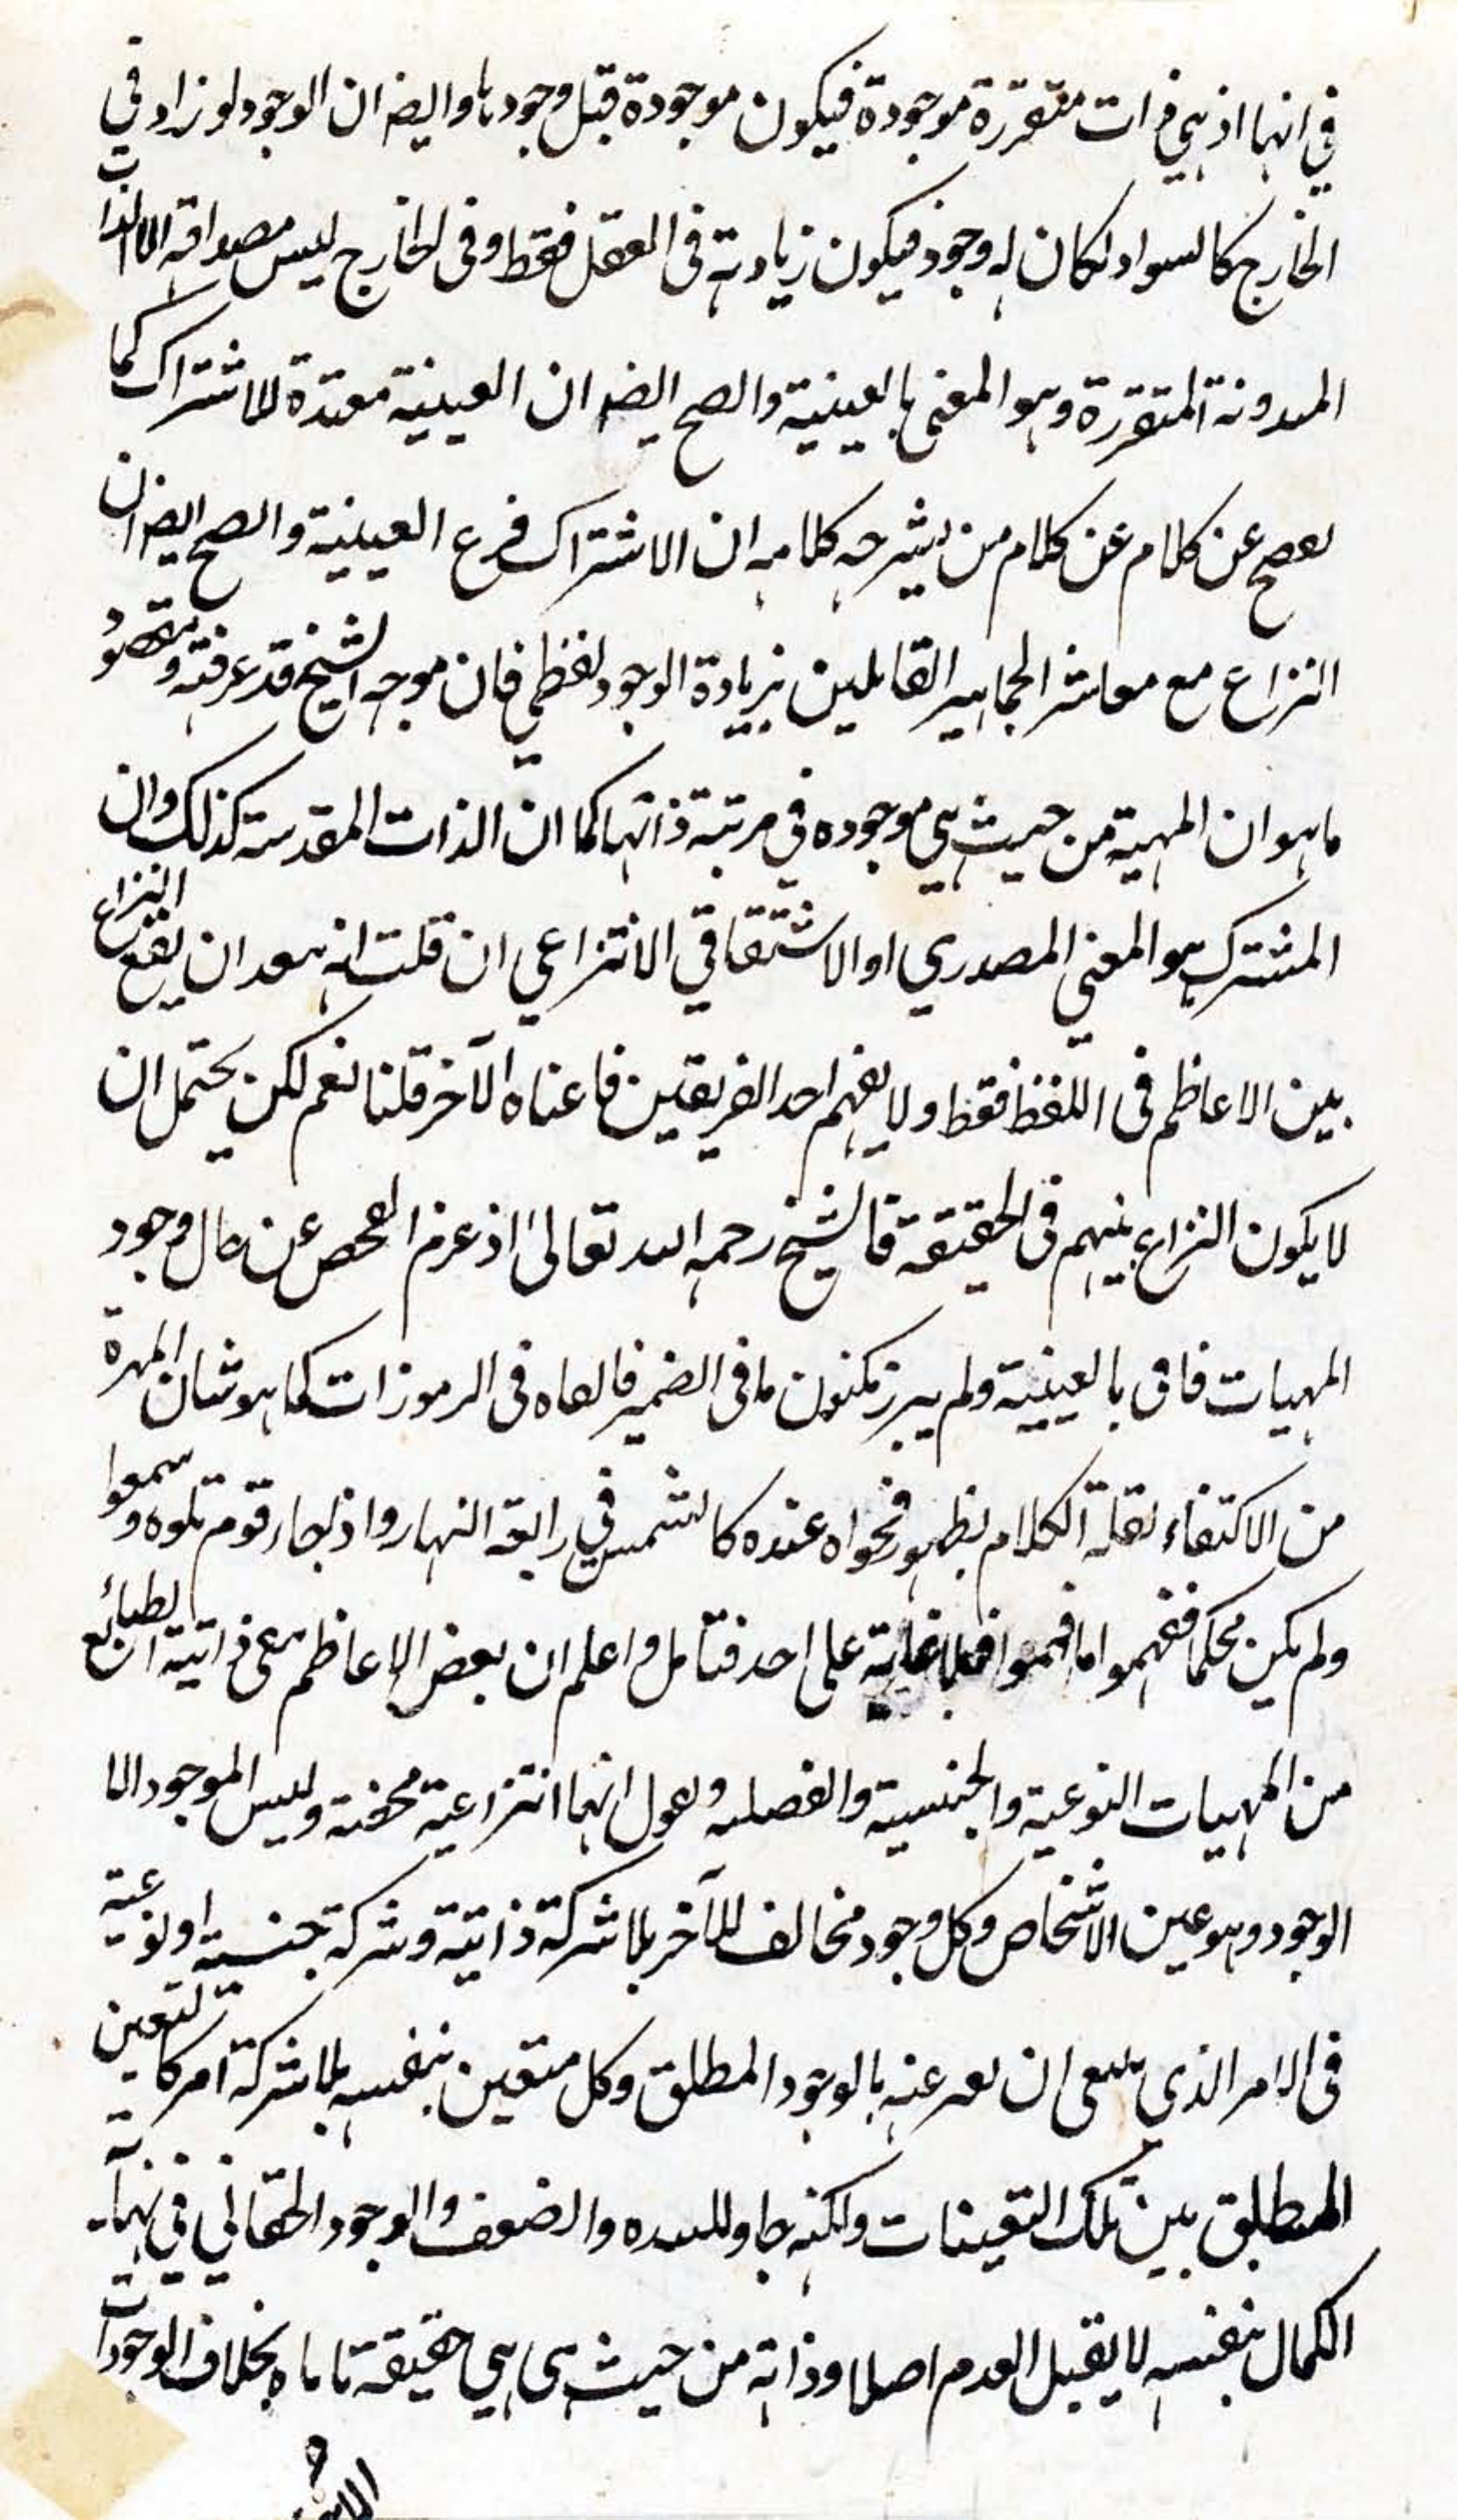 في انها اذ هي ذات متقررة موجودة فيكون موجودة قبل وجودها وايضا ان الوجود لو زاد في
الخارج كالسواد لكان له وجود فيكون زيادته في العقل فقط وفي الخارج ليس مصداقه الا الذات
المتقررة وهو المعني بالعينية والصح ايضا ان العينية للاشتراك كما
عن كلام من يشرحه كلامه ان الاشتراك فرع العينية والصح ايضا ان
النزاع مع معاشر الجماهير القايلين بزيادة الوجود لفظي فان موجه الشيخ قد عرفته ومقصود
ما هو ان المهية من حيث هي موجوده في مرتبة ذاتها كما ان الذات المقدسة كذلك وان
المشترك هو المعني المصدري او الاشتقاقي الانتزاعي ان قلت انه بعد ان يقع النزاع
بين الاعاظم في اللفظ فقط ولا يفهم احد الفريقين ما عناه الآخر قلنا نعم لكن يحتمل ان
لا يكون النزاع بينهم في الحقيقة فالشيخ رحمه الله تعالى اذ عزم الفحص عن حال وجود
المهيات فاق بالعينية ولم يبرز مكنون ما في الضمير فالقاه في الرموزات كما هو شان المهرة
من الاكتفاء بقلة الكلام بظهور فحواه عنده كالشمس في رابعة النهار واذ جاء قوم تلوه وسمعوا
ولم يكن محكما ففهموا ما فهموا على احد فتامل واعلم ان بعض الاعاظم نفى ذاتية الطبائع
من المهيات النوعية والجنسية والفصليه ويقول انها انتزاعية محضة وليس الموجود الا
الوجود وهو عين الاشخاص وكل وجود مخالف للآخر بلا شركة ذاتية وشركة جنسية او نوعية
في الامر الذي ينبغي ان يعبر عنه بالوجود المطلق وكل متعين بنفسه بلا شركة امر كالتعين
المطلق بين تلك التعينات ولكنه والضعف والوجود الحقاني في نهاية
الكمال بنفسه لا يقبل العدم اصلا وذاته من حيث هي هي حقيقة تاباه بخلاف الوجودات